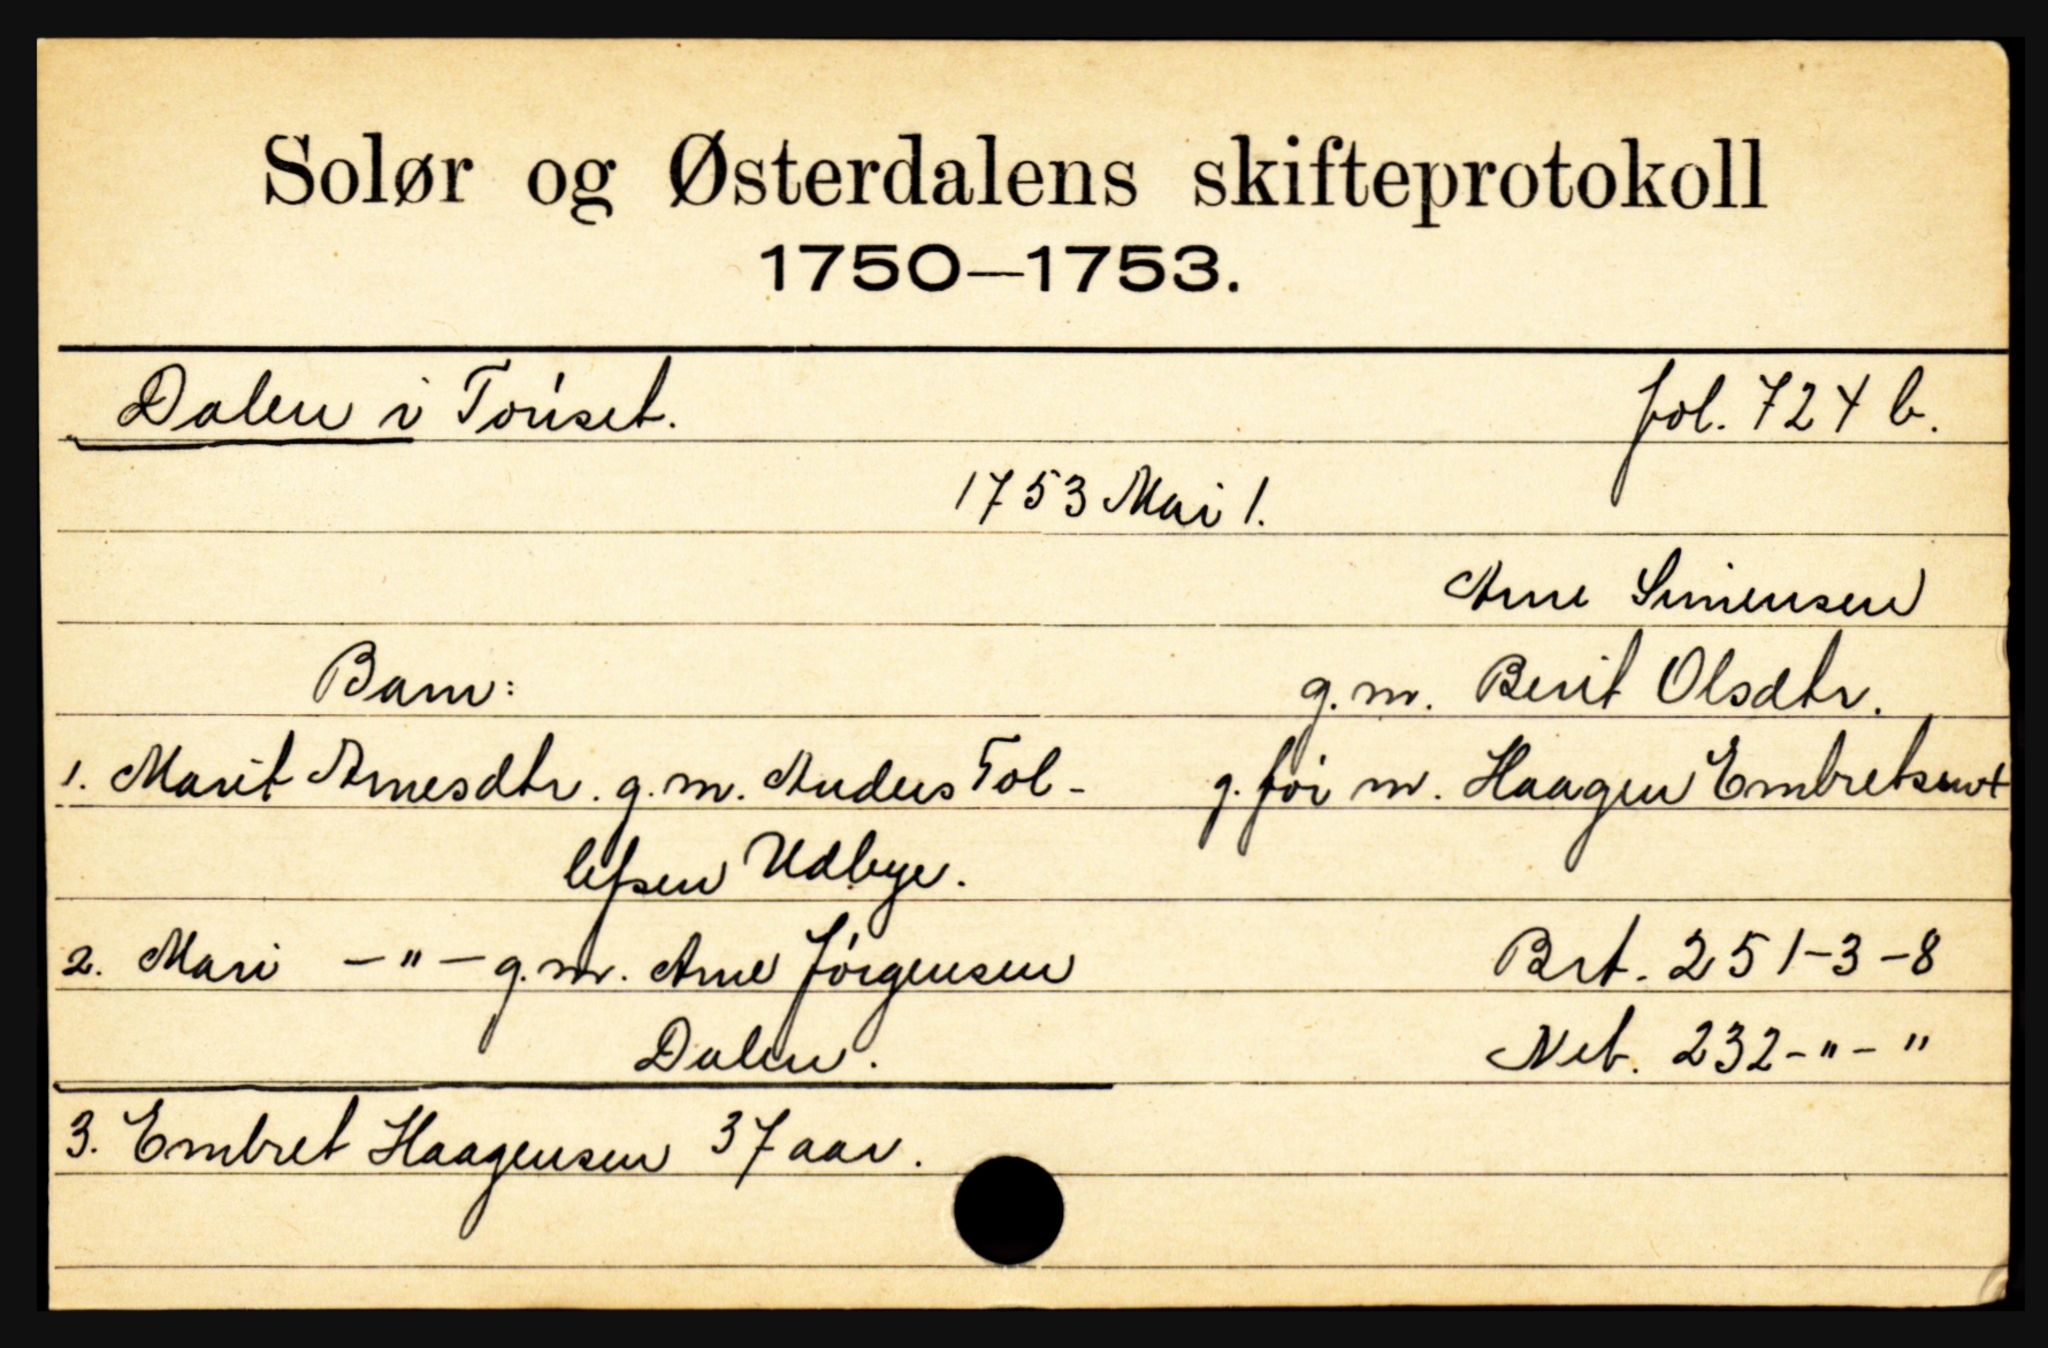 Solør og Østerdalens skifteprotokoll
1750—1753.
Dalen i Tønset. fol. 724 b.
1753 Mai 1.
Arne Simensen
Barn: g. m. Berit Olsdtr.
1. Marit Arnesdtr. g. m. Anders Tol- g. før m. Haagen Embretsen †
lefsen Udbye.
2. Mari — " — g. m. Arne Jörgensen Brt. 251-3-8
Dalen. Net. 232-"-"
3. Embret Haagensen 37 aar.